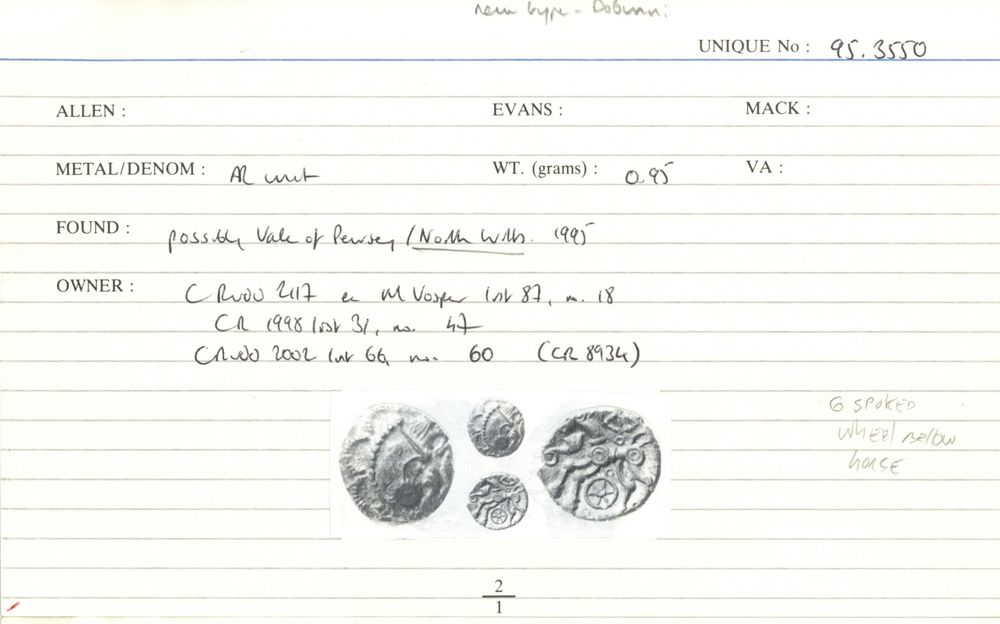 new type - Dobunni
UNIQUE No : 95.3550
ALLEN : EVANS : MACK :
METAL/DENOM : AR unit WT. (grams) : 0.95 VA :
FOUND : possibly Vale of Pewsey / North Wilts. 1995
OWNER : C Rudd 2117 ex M Vosper list 87, no. 18
CR 1998 list 31, no. 47
C Rudd 2002 list 66, no. 60 (CR 8934)
6 SPOKED
WHEEL BELOW
horse
2
1